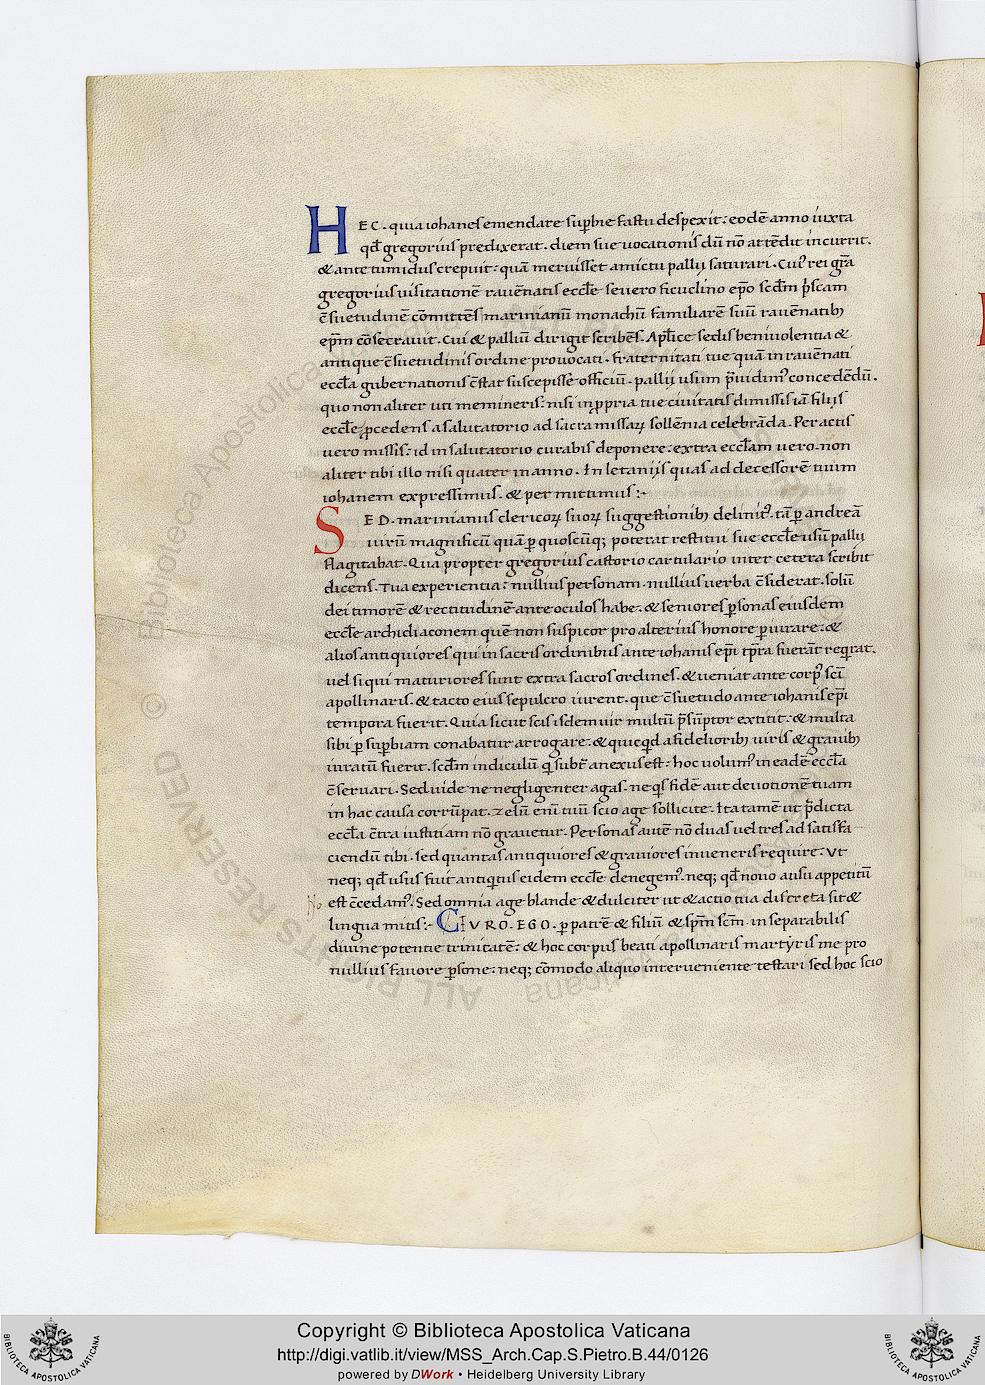 HEC. quia iohanes emendare supbie fastu despexit: eodē anno iuxta
qđ gregorius predixerat. diem sue uocationis dū nō attēdit incurrit.
& ante tumidus crepuit: quā meruisset amictu pallij saturari. Cui' rei gr̄a
gregorius uisitationē rauēnatis eccl̄e seuero ficuclino ep̄o scd̄m p̄scam
c̄suetudinē cōmittēs marinianū monachū familiarē suū rauēnatib;
ep̄m cōsecrauit. Cui & palliū dirigit scribēs. Apl̄ice sedis beniuolentia &
antique c̄suetudinis ordine prouocati. fraternitati tue quā in rauēnati
eccl̄a gubernationis c̄stat suscepisse officiū. pallij usum p̄uidim' concedēdū.
quo non aliter uti memineris: nisi in ꝓpria tue ciuitatis dimissis iā filijs
eccl̄e ꝓcedens a salutatorio ad sacra missaꝝ sollēnia celebrāda. Peractis
uero missis: id in salutatorio curabis deponere: extra eccl̄am uero non
aliter tibi illo nisi quater in anno. In letanijs quas ad decessorē tuum
iohanem expressimus. & per mittimus:~
SED. marinianus clericoꝝ suoꝝ suggestionib; delinit'. tā ꝑ andreā
uirū magnificū quā ꝑ quoscūq; poterat restitui sue eccl̄e usū pallij
flagitabat. Qua propter gregorius castorio cartulario inter cetera scribit
dicens. Tua experientia: nullius personam. nullius uerba c̄siderat. solū
dei timorē & rectitudinē ante oculos habe. & seniores ꝑsonas eiusdem
eccl̄e archidiaconem quē non suspicor pro alterius honore ꝑiurare: &
alios antiquiores qui in sacris ordinibus ante iohanis ep̄i tp̄ra fuerāt reqirat.
uel si qui maturiores sunt extra sacros ordines. & ueniat ante corp' sc̄i
apollinaris. & tacto eius sepulcro iurent. que c̄suetudo ante iohanis ep̄i
tempora fuerit. Quia sicut scis isdem uir multū p̄sūptor extitit: & multa
sibi ꝑ supbiam conabatur arrogare: & quicqd a fidelioribus uiris & grauib;
iuratū fuerit. scd̄m indiculū q subt̄ anexus est: hoc uolum' in eadē eccl̄a
c̄seruari. Sed uide ne negligenter agas. neqs fidē aut deuotionē tuam
in hac causa corrūpat. zelū eni tuū scio age sollicite. Ita tamē ut p̄dicta
eccl̄a c̄tra iustitiam nō grauetur. Personas autē nō duas uel tres ad satisfa
ciendū tibi. sed quantas antiquiores & grauiores inueneris require. Vt
neq; qđ usus fuit antiqitus eidem eccl̄e denegem'. neq; qđ nouo ausu appetitū
est c̄cedam'. Sed omnia age blande & dulciter ut & actio tua discreta sit &
lingua mitis:~ CIVRO. EGO. ꝑ patrē & filiū & sp̄m sc̄m. inseparabilis
diuine potentie trinitatē: & hoc corpus beati apollinaris martyris me pro
nullius fauore ꝑsone: neq; cōmodo aliquo interueniente testari sed hoc scio
© Biblioteca Apostolica Vaticana
ALL RIGHTS RESERVED
Copyright © Biblioteca Apostolica Vaticana
http://digi.vatlib.it/view/MSS_Arch.Cap.S.Pietro.B.44/0126
powered by DWork • Heidelberg University Library
BIBLIOTECA APOSTOLICA VATICANA
BIBLIOTECA APOSTOLICA VATICANA